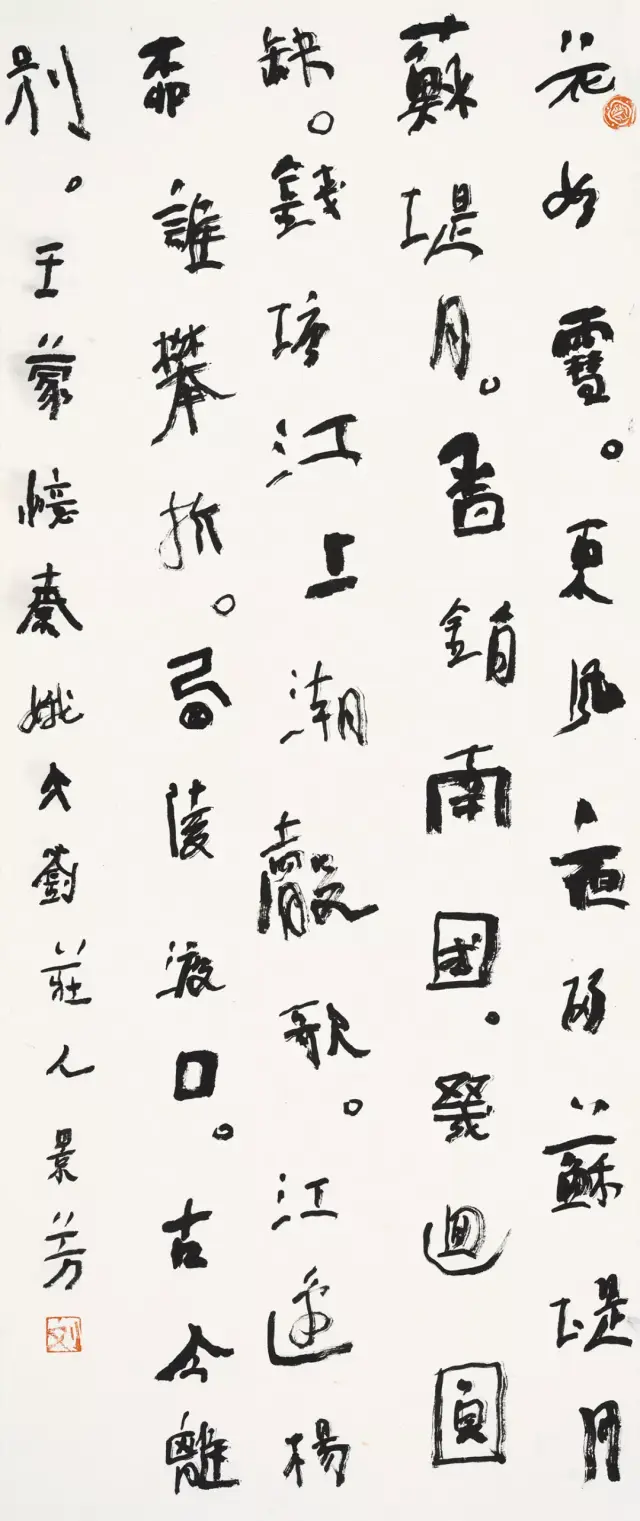 花如雪。東風夜蘇堤月
蘇堤月。香銷南國。幾迴圓
缺。錢塘江上潮聲歇。江邊楊
柳誰攀折。西陵渡口。古今離
別。王蒙憶秦娥大劉莊人景芳
刘